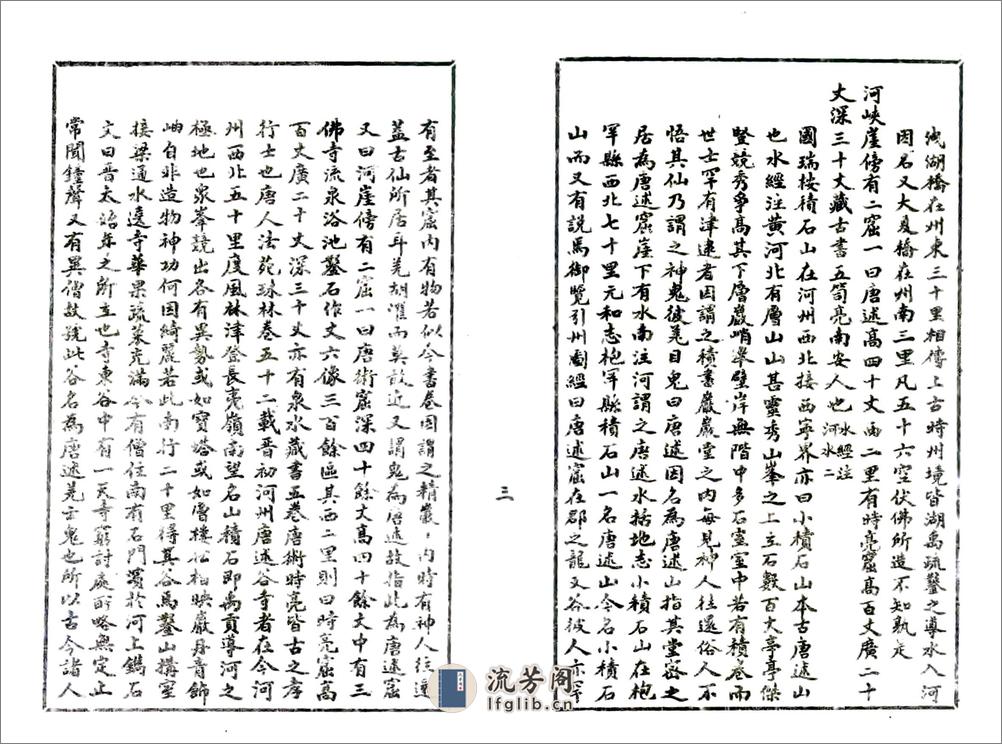 洩湖橋在州東三十里相傳上古時州境皆湖禹疏鑿之導水入河
因名又大夏橋在州南三里凡五十六空伏佛所造不知孰是
河峽崖傍有二窟一曰唐述高四十丈西二里有時亮窟高百丈廣二十
丈深三十丈藏古書五笥亮南安人也水經注河水二
國瑞按積石山在河州西北接西寧界亦曰小積石山本古唐述山
也水經注黃河北有層山山甚靈秀山峯之上立石數百丈亭亭傑
豎競秀爭高其下層巖峭舉壁岸無階中多石室室中若有積卷而
世士罕有津逮者因謂之積書巖巖堂之內每見神人往還俗人不
悟其仙乃謂之神鬼彼羌目鬼曰唐述因名為唐述山指其堂密之
居為唐述窟崖下有水南注河謂之唐述水括地志小積石山在枹
罕縣西北七十里元和志枹罕縣積石山一名唐述山今名小積石
山而又有說焉御覽引州圖經曰唐述窟在郡之龍支谷彼人亦罕
三
有至者其窟內有物若似今書卷因謂之精巖巖內時有神人往還
蓋古仙所居耳羌胡懼而莫敢近又謂鬼為唐述故指此為唐述窟
又曰河崖傍有二窟一曰唐術窟深四十餘丈高四十餘丈中有三
佛寺流泉浴池鑿石作丈六像三百餘區其西二里則曰時亮窟高
百丈廣二十丈深三十丈亦有泉水藏書五卷唐術時亮皆古之孝
行士也唐人法苑珠林卷五十二載晉初河州唐述谷寺者在今河
州西北五十里度風林津登長夷嶺南望名山積石即禹貢導河之
極地也眾峯競出各有異勢或如寶塔或如層樓松柏映巖丹青飾
岫自非造物神功何因綺麗若此南行二十里得其谷焉鑿山構室
接梁通水遶寺華果蔬菜充滿今有僧住南有石門濱於河上鐫石
文曰晉太始年之所立也寺東谷中有一天寺窮討處所略無定止
常聞鐘聲又有異僧故號此谷名為唐述羌云鬼也所以古今諸人
流芳阁
lfglib.cn